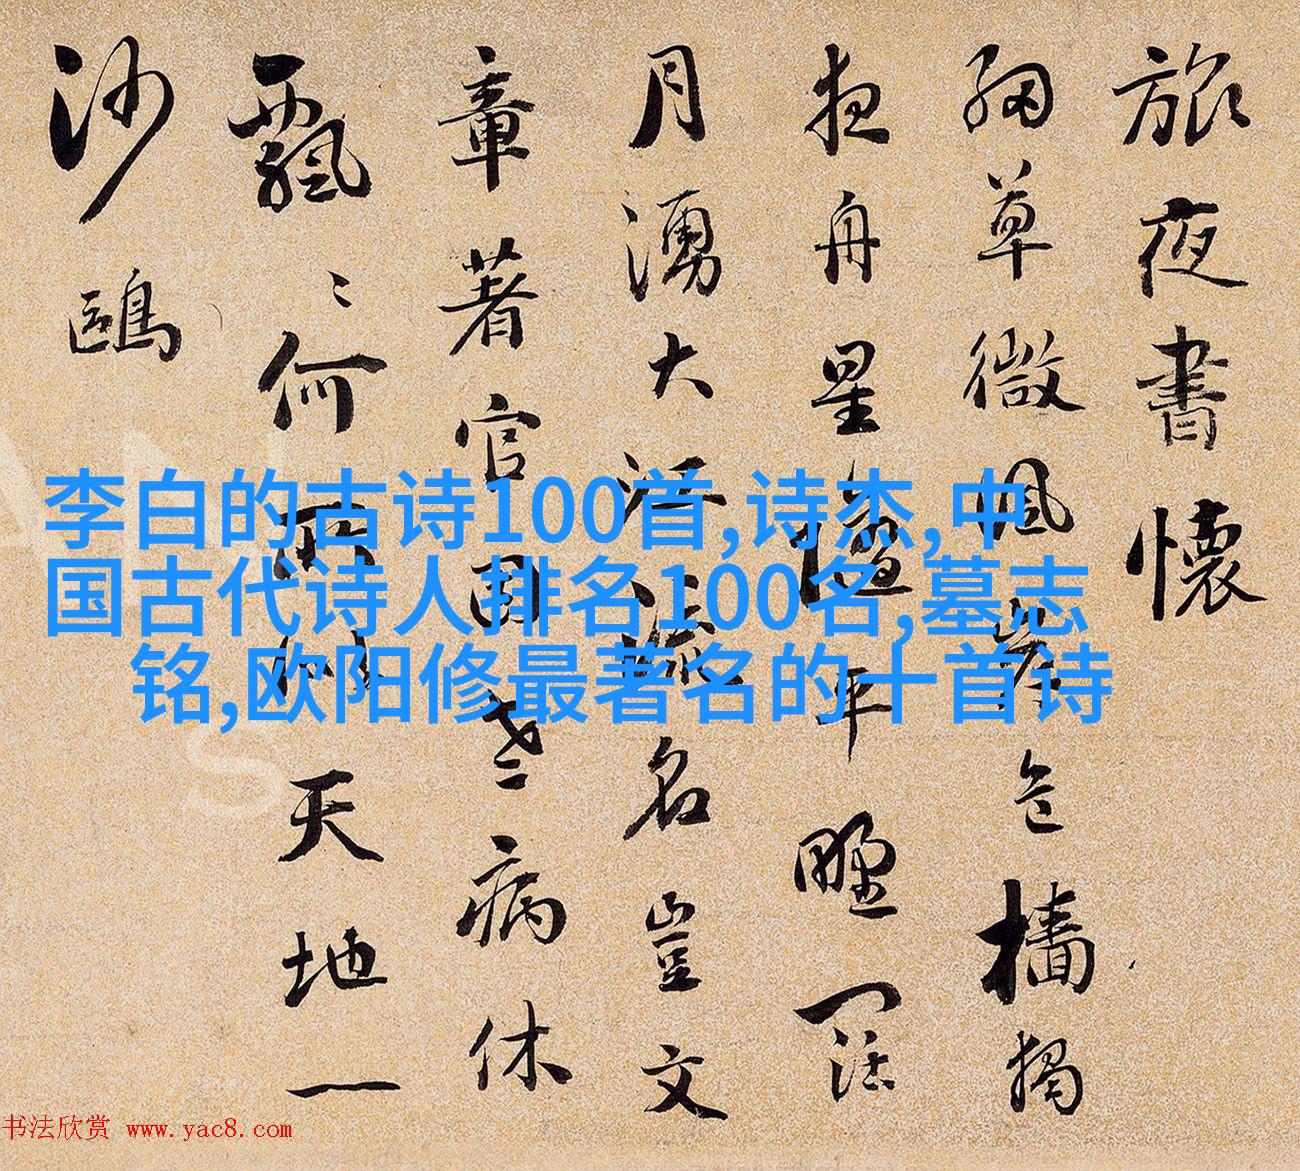 旅夜書懷
細草微風岸危檣獨
夜舟星平野闊
月湧大江流名豈文
章著官因老病休
飄〻何所似天地一
沙鷗
李白的古诗100首,诗杰,中
国古代诗人排名100名,墓志
铭,欧阳修最著名的十首诗
书法欣赏 www.yac8.com